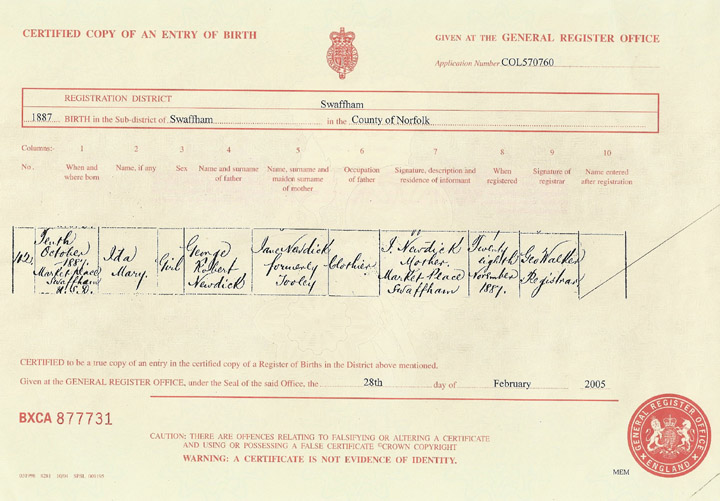 CERTIFIED COPY OF AN ENTRY OF BIRTH
GIVEN AT THE GENERAL REGISTER OFFICE
Application Number COL570760
REGISTRATION DISTRICT Swaffham
1887 BIRTH in the Sub-district of Swaffham in the County of Norfolk
Columns:- 1 2 3 4 5 6 7 8 9 10
No. When and where born
Name, if any
Sex
Name and surname of father
Name, surname and maiden surname of mother
Occupation of father
Signature, description and residence of informant
When registered
Signature of registrar
Name entered after registration
102
Tenth
October
1887.
Market Place
Swaffham
U.S.D.
Ida
Mary.
Girl
George
Robert
Newdick
Jane Newdick
formerly
Tooley
Clothier
J. Newdick
Mother
Market Place
Swaffham
Twenty
eighth
November
1887.
Geo Walker
Registrar
CERTIFIED to be a true copy of an entry in the certified copy of a Register of Births in the District above mentioned.
Given at the GENERAL REGISTER OFFICE, under the Seal of the said Office, the 28th day of February 2005
BXCA 877731
CAUTION: THERE ARE OFFENCES RELATING TO FALSIFYING OR ALTERING A CERTIFICATE
AND USING OR POSSESSING A FALSE CERTIFICATE ©CROWN COPYRIGHT
WARNING: A CERTIFICATE IS NOT EVIDENCE OF IDENTITY.
GENERAL REGISTER OFFICE
ENGLAND
MEM